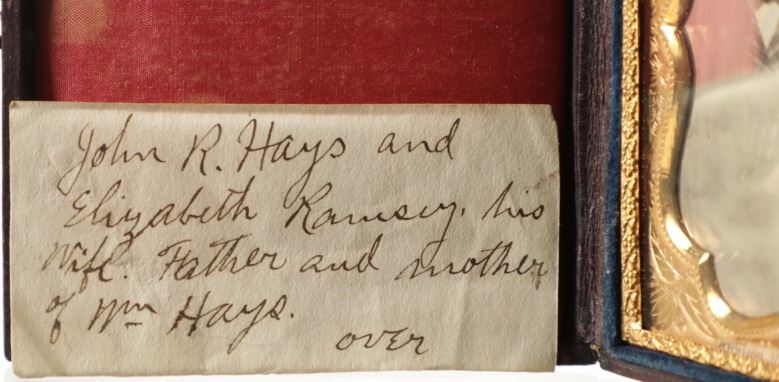 John R. Hays and
Elizabeth Ramsey. his
wife. Father and mother
of Wm Hays.
over